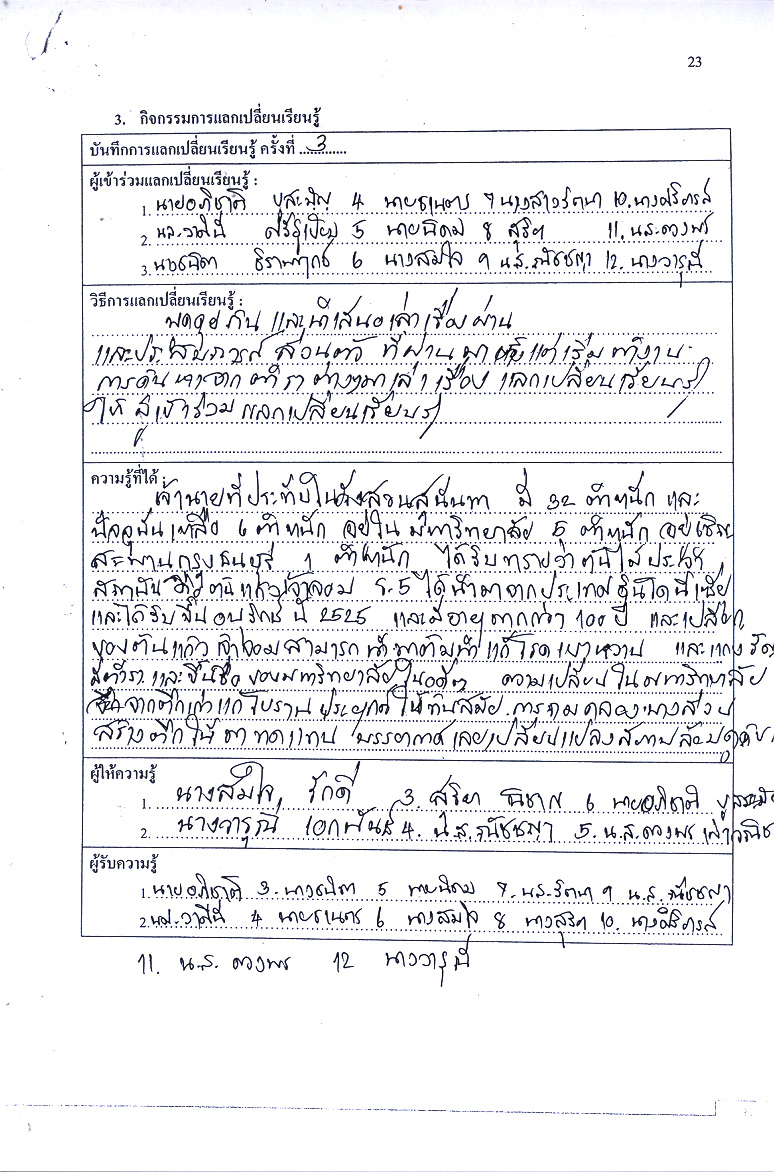 23
3. กิจกรรมการแลกเปลี่ยนเรียนรู้
บันทึกการแลกเปลี่ยนเรียนรู้ ครั้งที่ ...3...
ผู้เข้าร่วมแลกเปลี่ยนเรียนรู้ :
1. นายอภิชาติ 4 นายธเนตร 7 นางสาวรัตนา 10. นางศริภรณ์
2. น.ส.วาสินี 5 นายนิคม 8 สุริษา 11. น.ส. ดวงพร
3. นางธนิตา 6 นางสมใจ 9 น.ส.ณัชชญา 12. นางวารุณี
วิธีการแลกเปลี่ยนเรียนรู้ :
พูดคุยกัน และนำเสนอเล่าเรื่องผ่าน
และประสบการณ์ ส่วนตัว ที่ผ่านมาตั้งแต่เริ่มทำงาน
การค้นหาจากตำราต่างๆมาเล่าเรื่อง แลกเปลี่ยนเรียนรู้
ให้ผู้เข้าร่วมแลกเปลี่ยนเรียนรู้
ความรู้ที่ได้ :
เจ้านายที่ประทับในวังสวนสุนันทา มี 32 ตำหนัก และ
ปัจจุบันเหลือ 6 ตำหนัก อยู่ในมหาวิทยาลัย 5 ตำหนัก อยู่เชิง
สะพานกรุงธนบุรี 1 ตำหนัก ได้รับทราบว่าต้นไม้ประจำ
สถาบัน คือต้นแก้วเจ้าจอม ร.5 ได้นำมาจากประเทศอินโดนีเซีย
และได้รับขึ้นอนุรักษ์ ปี 2525 และมีอายุมากกว่า 100 ปี และเปลือก
ของต้นแก้วเจ้าจอมสามารถนำมาต้มน้ำแก้โรคเบาหวาน และ
และชื่อของมหาวิทยาลัยในอดีต ความเปลี่ยนในมหาวิทยาลัย
จากตึกเก่าแก่โบราณ ประยุกต์ให้ทันสมัย การถมคลองบางส่วน
สร้างตึกให้มาทดแทน บรรยากาศเลยเปลี่ยนแปลงสภาพล้อม
ผู้ให้ความรู้
1. นางสมใจ รักดี 3. สุริษา 6 นายอภิชาติ
2. นางวารุณี เอกพันธ์ 4. น.ส.ณัชชญา 5. น.ส.ดวงพร
ผู้รับความรู้
1. นายอภิชาติ 3. นางธนิตา 5 นายนิคม 7. น.ส.รัตนา 9 น.ส.ณัชชญา
2. น.ส.วาสินี 4 นายธเนตร 6 นางสมใจ 8 นางสุริษา 10. นางศิริภรณ์
11. น.ส. ดวงพร 12 นางวารุณี